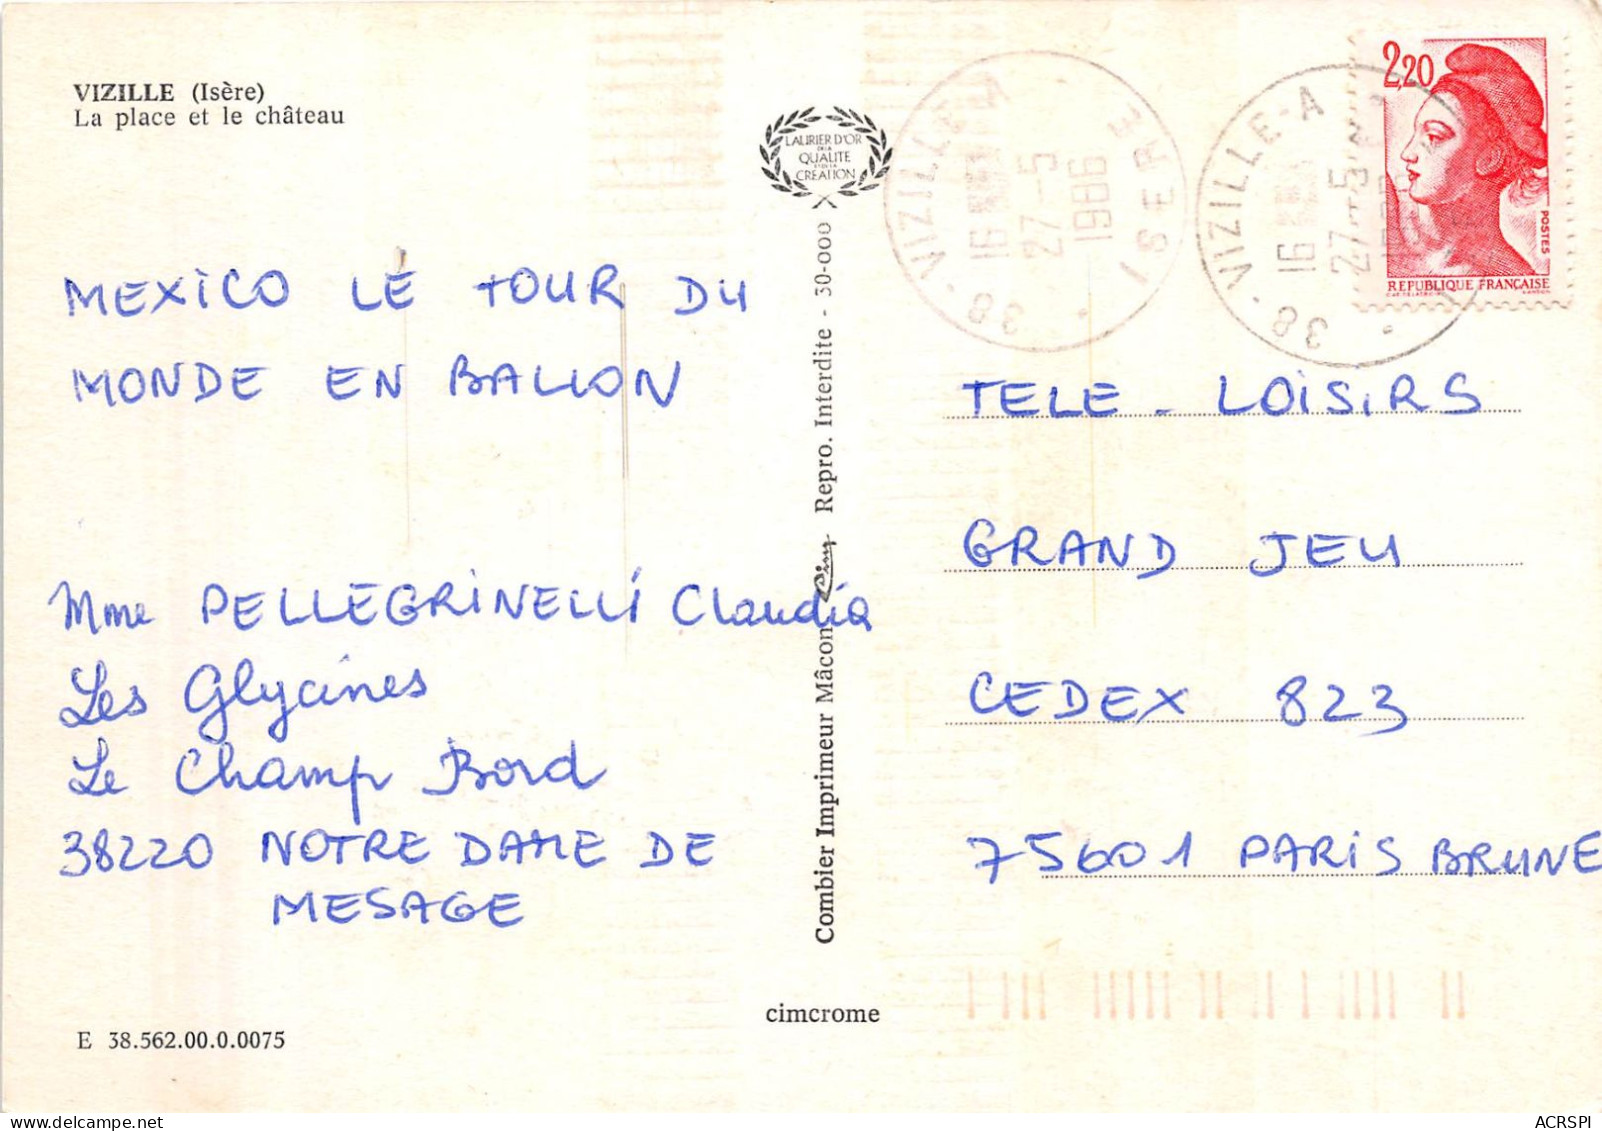 VIZILLE (Isère)
La place et le château
LAURIER D'OR
DE LA
QUALITE
ET DE LA
CREATION
MEXICO LE TOUR DU
MONDE EN BALLON
Mme PELLEGRINELLI Claudia
Les Glycines
Le Champ Bord
38220 NOTRE DAME DE
MESAGE
E 38.562.00.0.0075
Combier Imprimeur Mâcon Cim Repro. Interdite - 30-000
cimcrome
38 · VIZILLE
16
27-5
1986
ISERE
38 · VIZILLE-A
16
27-5
2,20
POSTES
REPUBLIQUE FRANÇAISE
TELE - LOISIRS
GRAND JEU
CEDEX 823
75601 PARIS BRUNE
ACRSPI